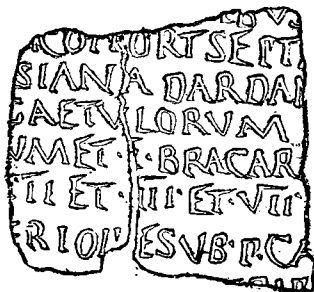 COHORTSEPT
SIANA DARDAN
GAETVLORVM
VMET·I·BRACAR
III ET·III·ET·VII·
ERIOR ESVB·P·C